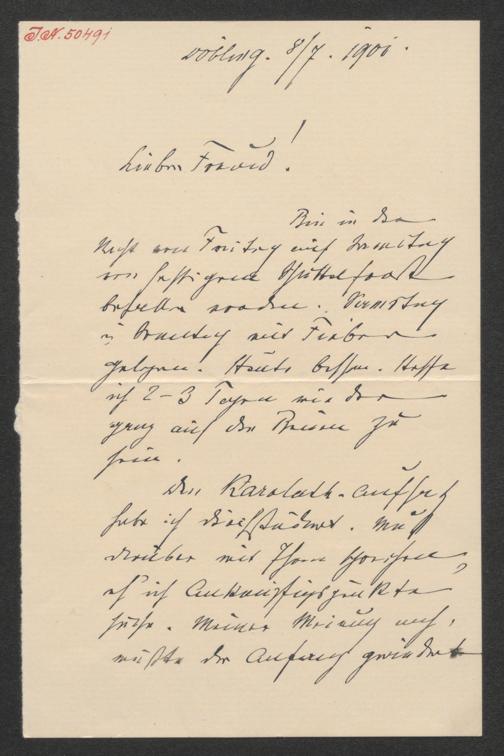 J.N. 50491
Döbling. 8/7. 1901.
Lieber Freund!
Bin in der
Nacht von Freitag auf Samstag
von heftigem Schüttelfrost
befallen worden. Samstag
u Sonntag mit Fieber
gelegen. Heute besser. Hoffe
in 2-3 Tagen wieder
ganz auf den Beinen zu
sein.
Den Karolath-Aufsatz
habe ich durchstudiert. Muß
darüber mit Ihnen sprechen,
eh' ich Anknüpfungspunkte
suche. Meiner Meinung nach,
müßte der Anfang geändert